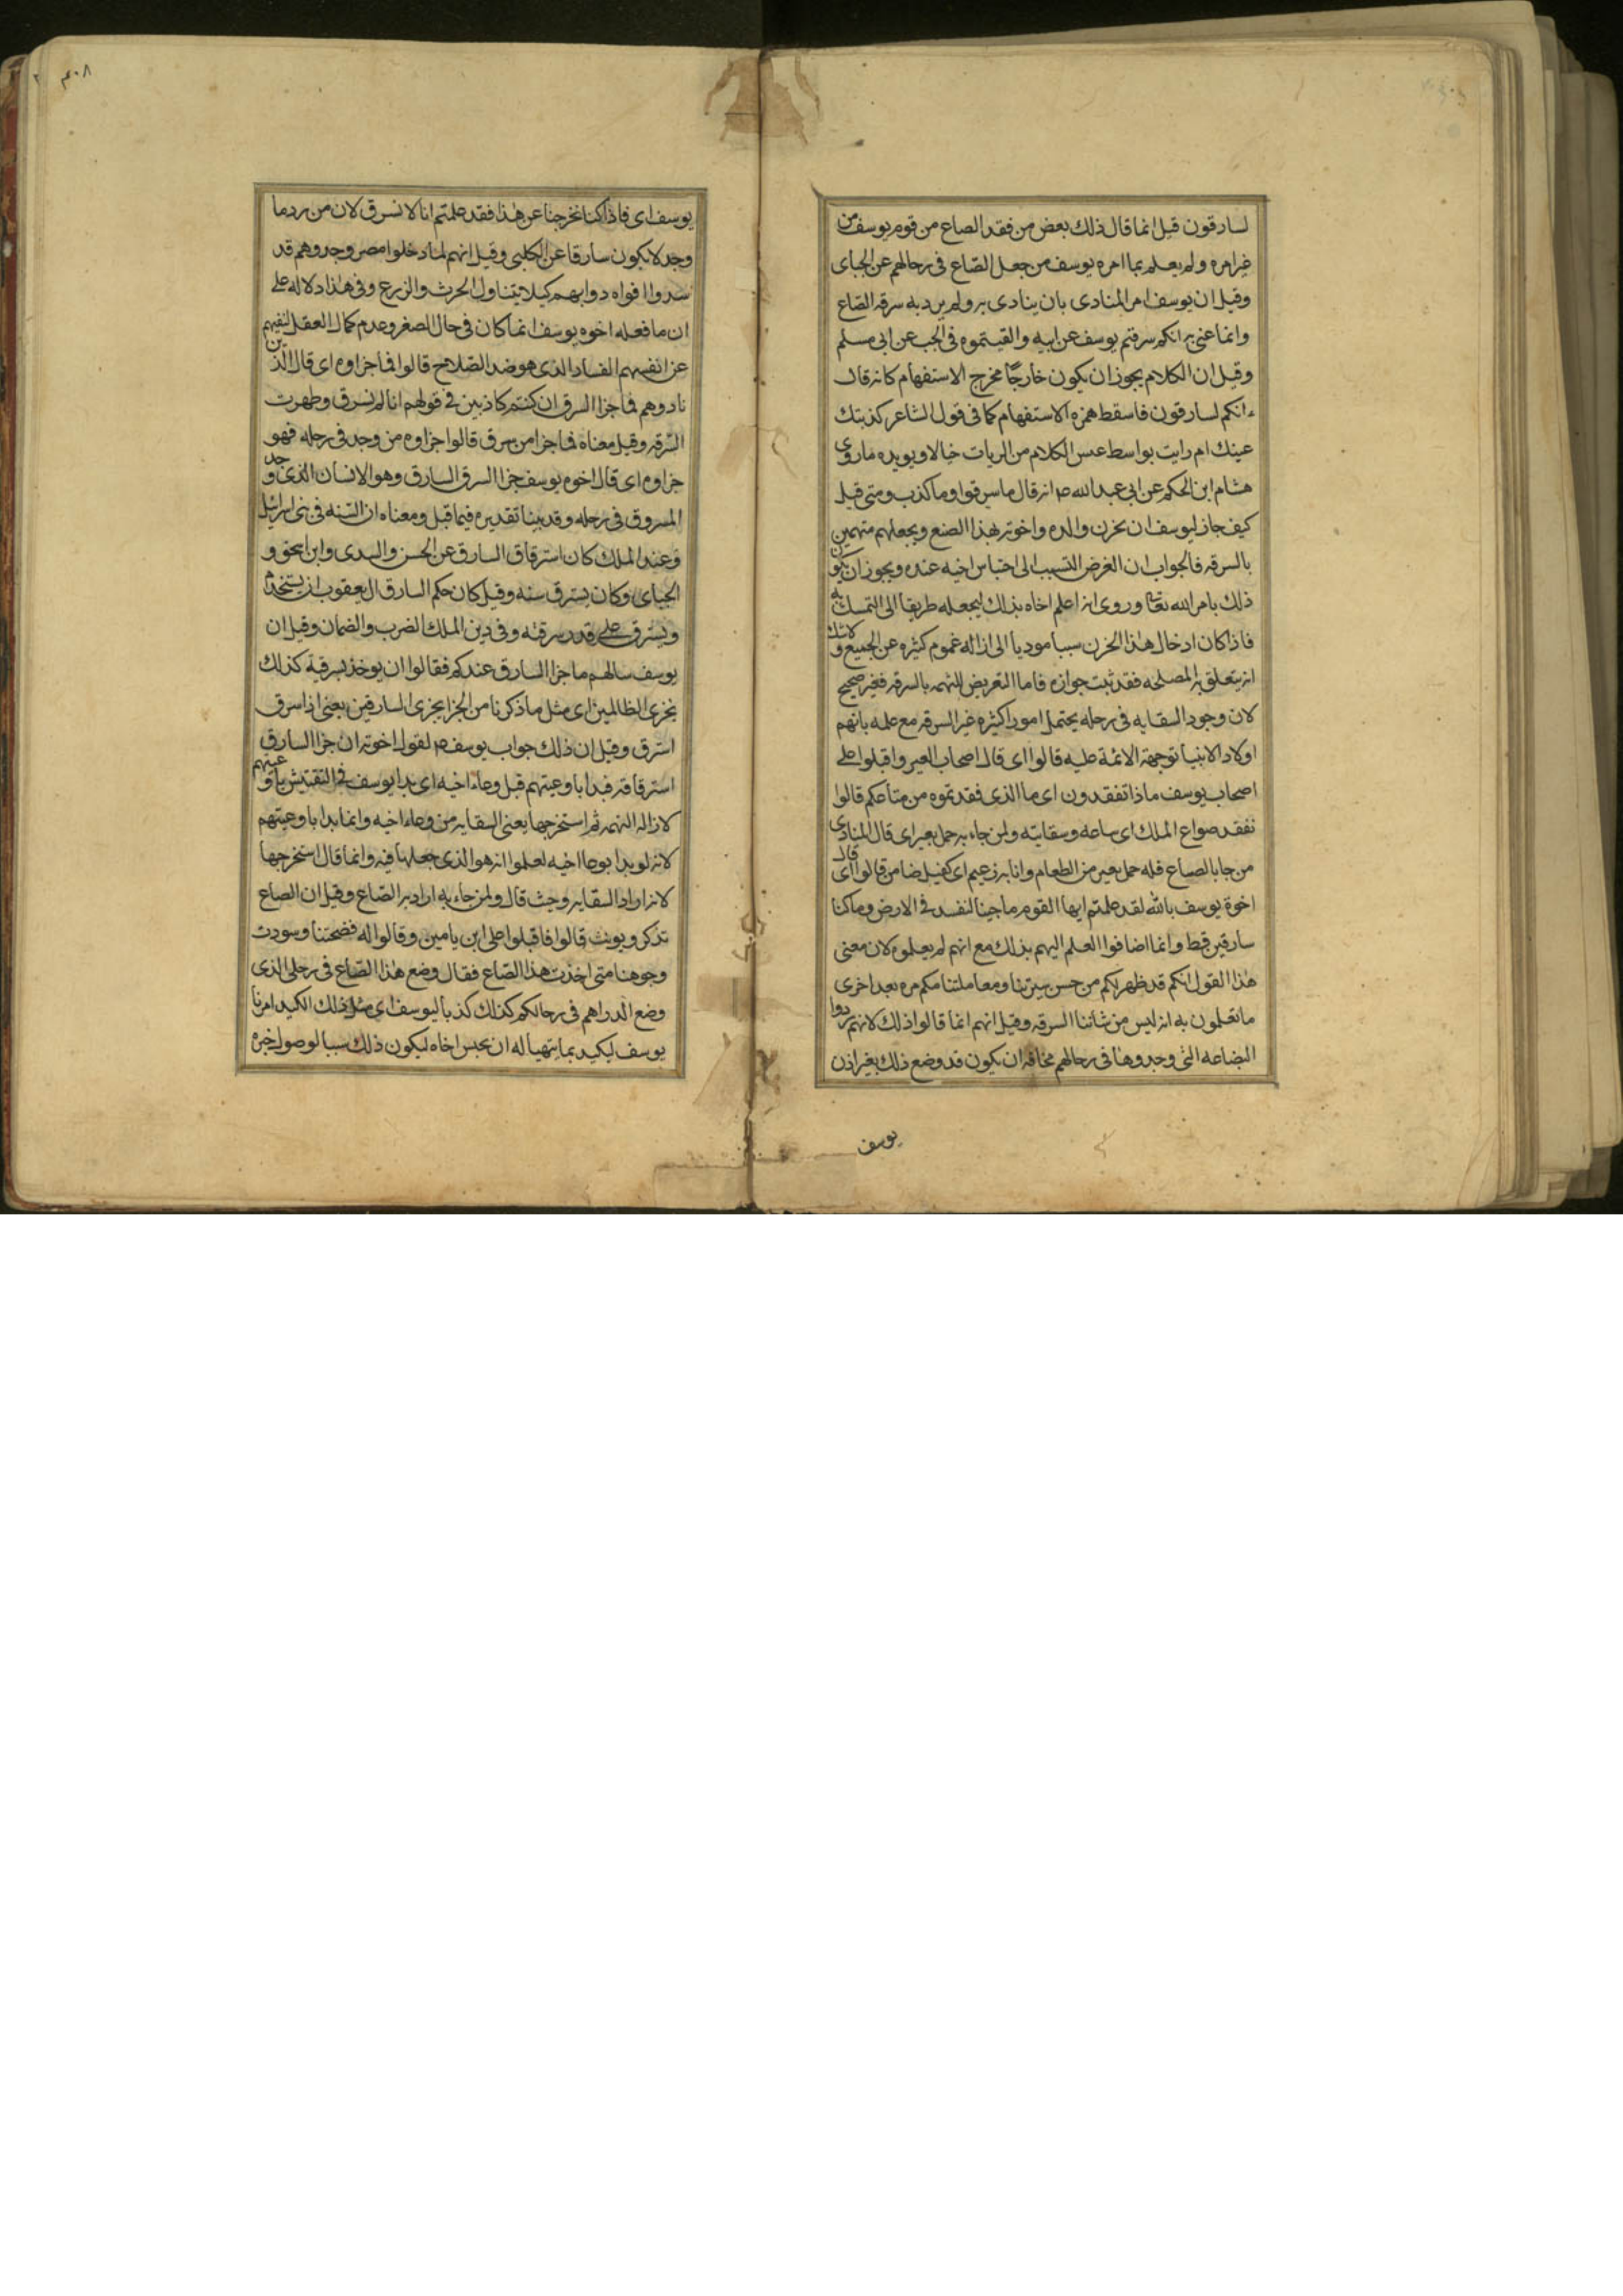 لسارقون قيل انما قال ذلك بعض من فقد الصاع من قوم يوسف من
غيرامره ولم يعلم بما امره يوسف من جعل الصّاع فى رحالهم عن الجباى
وقيل ان يوسف امر المنادى بان ينادى به ولم يرد به سرقه الصّاع
وانما عنى به انكم سرقتم يوسف عن ابيه والقيتموه فى الجب عن ابى مسلم
وقيل ان الكلام يجوز ان يكون خارجًا مخرج الاستفهام كانه قال
ءانكم لسارقون فاسقط همزه الاستفهام كما فى قول الشاعر كذبتك
عينك ام رايت بواسط عس الكلام من الربات خيالا ويويده ماروى
هشام ابن الحكم عن ابى عبد الله ع انه قال ماسرقوا وماكذب ومتى قيل
كيف جاز ليوسف ان يحزن والده واخوته بهذا الصنع ويجعلهم متهمين
بالسرقه فالجواب ان الغرض التسبب الى احتباس اخيه عنده ويجوز ان يكون
ذلك بامر الله تعالى وروى انه اعلم اخاه بذلك ليجعله طريقا الى التمسك به
فاذا كان ادخال هذا الحزن سببا موديا الى ازاله غموم كثيره عن الجميع ولاشك
انه يتعلق به المصلحه فقد ثبت جوازه فاما التعريض للتهمه بالسرقه فغير صحيح
لان وجود السقايه فى رحله يحتمل امورا كثيره غير السرقه مع علمه بانهم
اولاد الانبيا توجهت الائمة عليه قالوا اى قال اصحاب العير واقبلوا على
اصحاب يوسف ماذا تفقدون اى ما الذى فقدتموه من متاعكم قالوا
نفقد صواع الملك اى صاعه وسقايته ولمن جاء به حمل بعير اى قال المنادى
من جا بالصاع فله حمل بعير من الطعام وانا به زعيم اى كفيل ضامن قالوا اى قال
اخوة يوسف بالله لقد علمتم ايها القوم ماجينا لنفسد فى الارض وماكنا
سارقين قط وانما اضافوا العلم اليهم بذلك مع انهم لم يعلموه لان معنى
هذا القول انكم قد ظهر لكم من حسن سيرتنا ومعاملتنا معكم مره بعد اخرى
ماتعلمون به انه ليس من شاننا السرقه وقيل انهم انما قالوا ذلك لانهم ردوا
البضاعه التى وجدوها فى رحالهم مخافه ان يكون قد وضع ذلك بغير اذن
يوسف
٤٠٨
يوسف اى فاذا كنا نخرجنا عن هذا فقد علمتم انا لا نسرق لان من رد ما
وجد لايكون سارقا عن الكلبى وقيل انهم لما دخلوا مصر وجدوهم قد
سدوا افواه دوابهم كيلا يتناول الحرث والزرع وفى هذا دلاله على
ان مافعله اخوه يوسف انما كان فى حال الصغر وعدم كمال العقل لنفيهم
عن انفسهم الفساد الذى هو ضد الصّلاح قالوا فما جزاوه اى قال الذين
نادوهم فما جزا السرق ان كنتم كاذبين فى قولهم انا لم نسرق وظهرت
السّرقه وقيل معناه فما جزا من سرق قالوا جزاوه من وجد فى رحله فهو
جزاوه اى قال اخوه يوسف جزا السرق السارق وهو الانسان الذى وجد
المسروق فى رحله وقد بينا تقديره فيما قبل ومعناه ان السّنه فى بنى اسرائيل
وعند الملك كان استرقاق السارق عن الحسن والسدى وابن اسحق و
الجباى وكان يسترق سنه وقيل كان حكم السارق ال يعقوب ان يستخدم
ويسترق على قدر سرقته وفى دين الملك الضرب والضمان وقيل ان
يوسف سالهم ماجزا السارق عندكم فقالوا ان يوخذ بسرقته كذلك
نجزى الظالمين اى مثل ماذكرنا من الجزا يجزى السارقين يعنى اذا سرق
استرق وقيل ان ذلك جواب يوسف ع لقول اخوته ان جزا السارق
استرقاقه فبدا باوعيتهم قبل وعاء اخيه اى بدا يوسف فى التفتيش باوعيتهم
لازاله التهمه ثم استخرجها يعنى السقايه من وعاء اخيه وانما بدا باوعيتهم
لانه لو بدا بوعا اخيه لعلموا انه هو الذى جعلها فيه وانما قال استخرجها
لانه اراد السقايه وحيث قال ولمن جاء به اراد به الصّاع وقيل ان الصاع
تذكر ويونث قالوا فاقبلوا على ابن يامين وقالوا له فضحتنا وسودت
وجوهنا متى اخذت هذا الصّاع فقال وضع هذا الصّاع فى رحلى الذى
وضع الدراهم فى رحالكم كذلك كدنا ليوسف اى مثل ذلك الكيد امرنا
يوسف ليكيد بما يتهيأ له ان يحبس اخاه ليكون ذلك سببا لوصول خبره